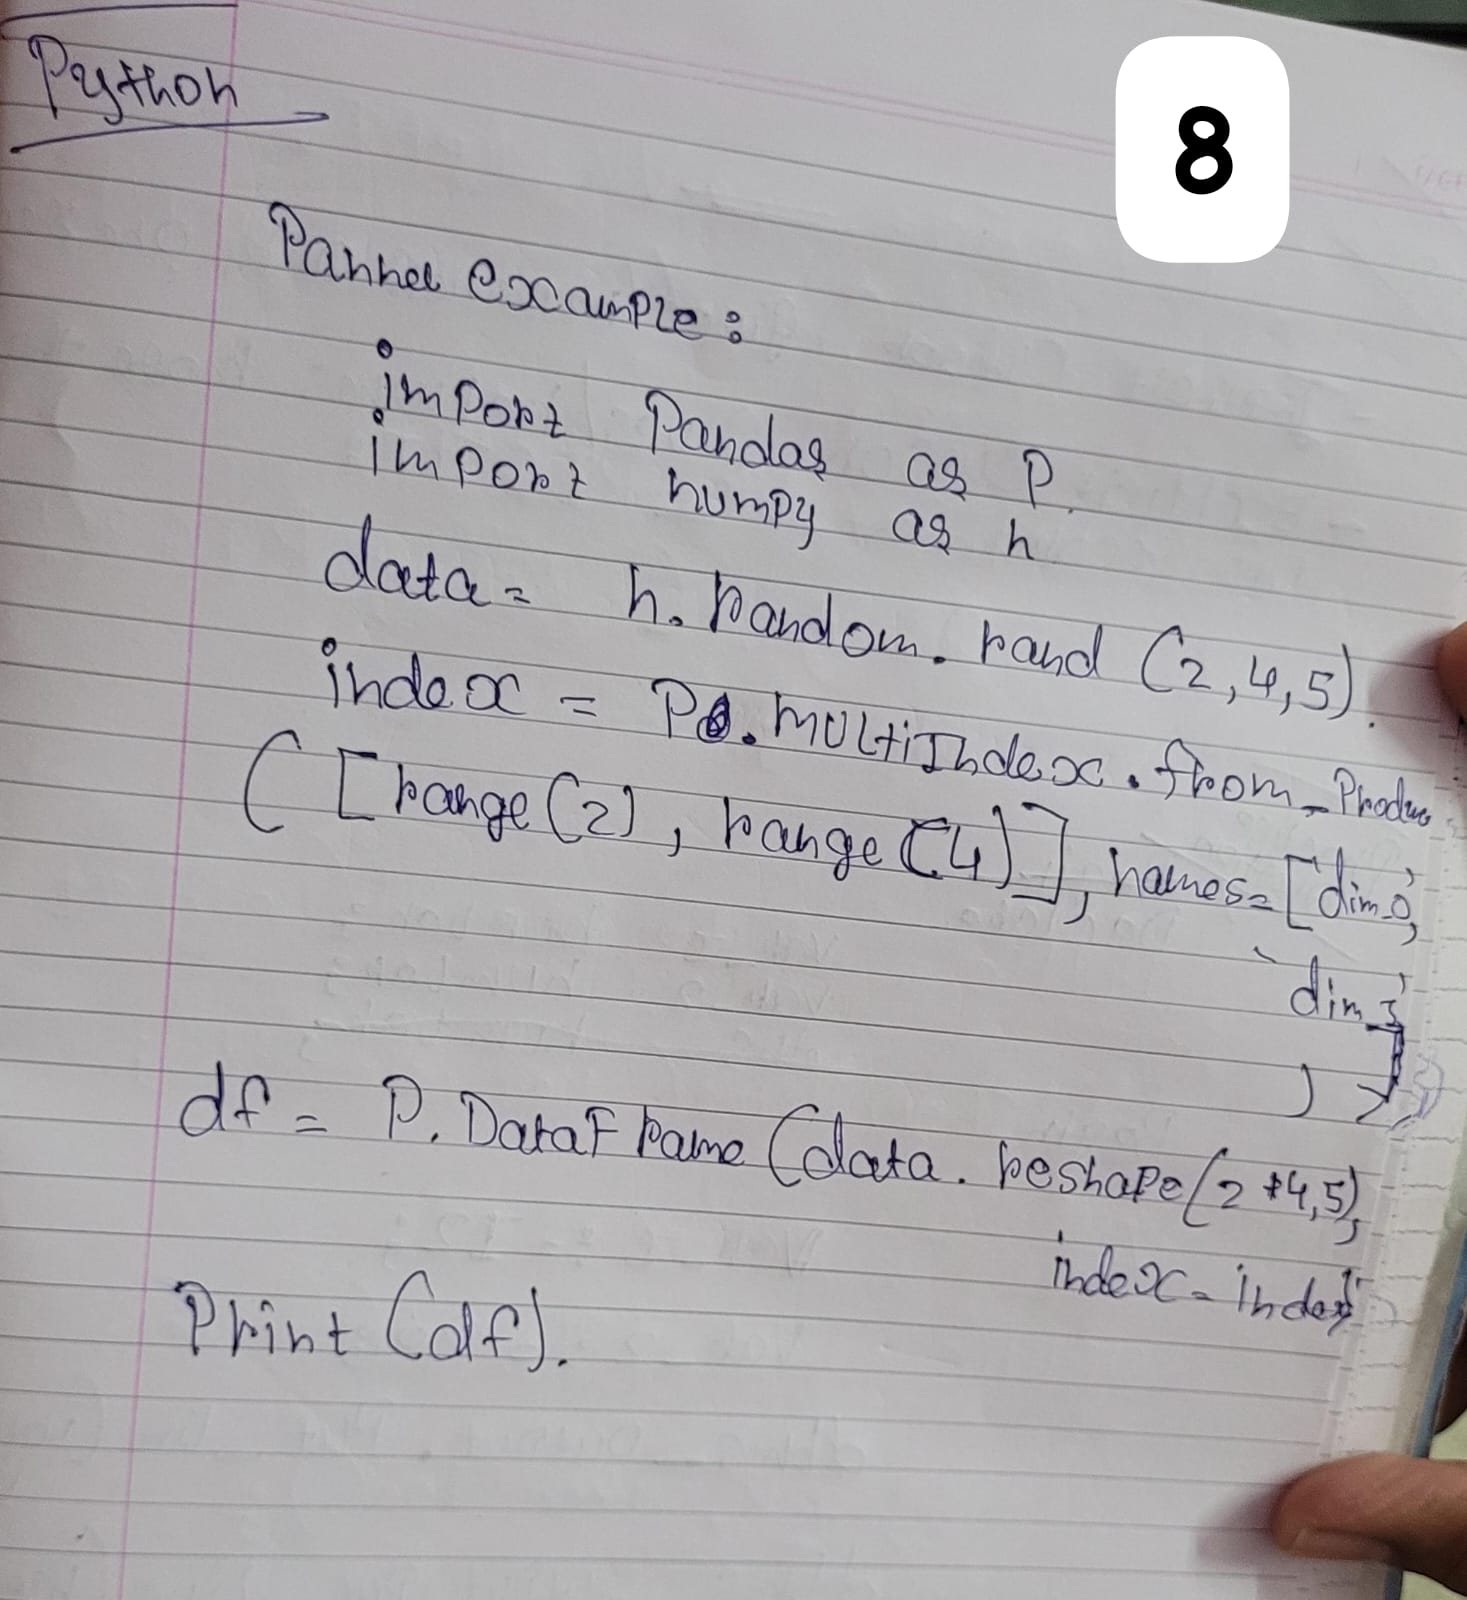 Python
8
Pannel example:
import Pandas as P
import numpy as n
data = n.random.rand (2,4,5).
index = P.MultiIndex.from_Produc
([range(2), range(4)], names=['dim_0',
'dim_1'
])
df = P.DataFrame (data.reshape(2*4,5),
index=index)
Print (df).